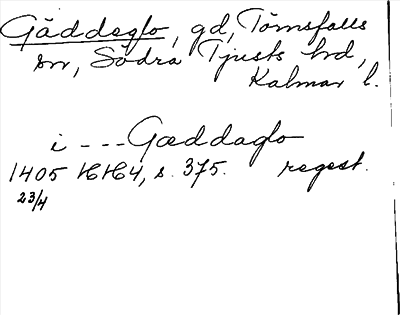 Gäddeglo, gd, Törnsfalls
sn, Södra Tjusts hrd,
Kalmar l.
i - - - Gæddaglo
1405 HH4, s. 375. regest.
23/4